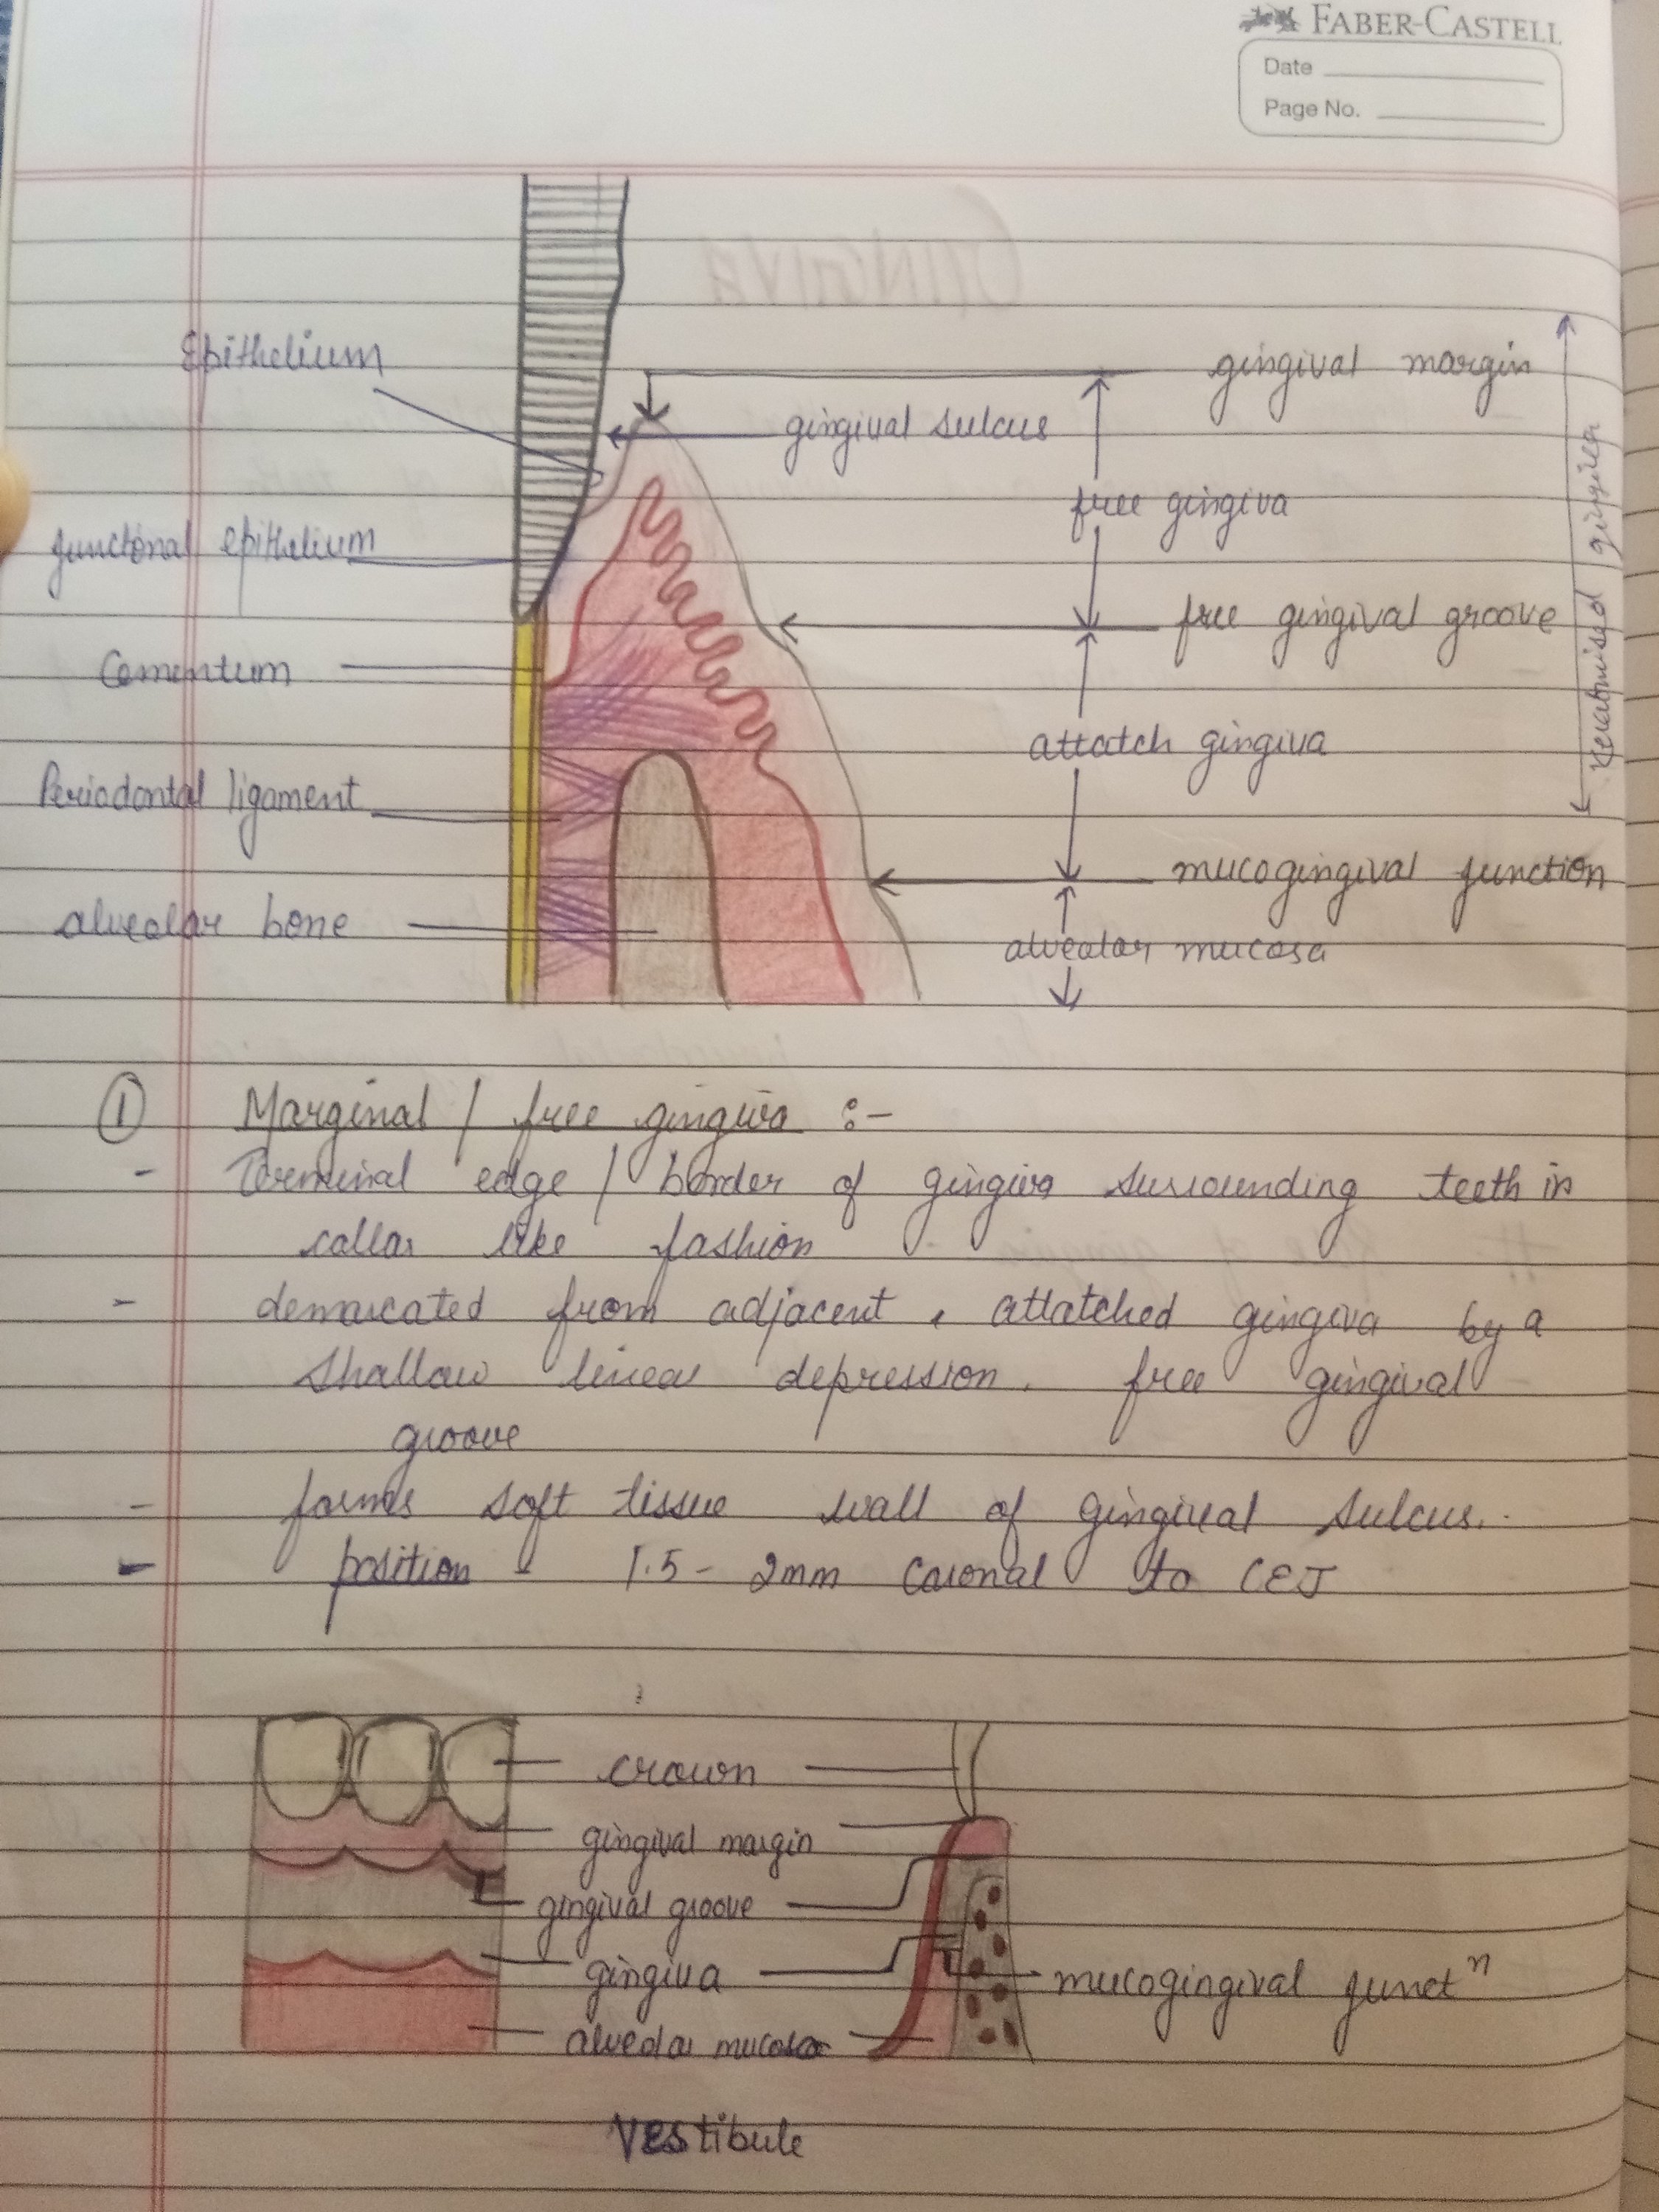 FABER-CASTELL
Date
Page No.
Epithelium
gingival margin
gingival sulcus
free gingiva
junctional epithelium
free gingival groove
keratnised gingiva
Cementum
attatch gingiva
Periodontal ligament
mucogingival junction
alveolar bone
alveolar mucosa
① Marginal / free gingiva :-
- Terminal edge / border of gingiva surrounding teeth in
collar like fashion
- demarcated from adjacent, attatched gingiva by a
shallow linear depression. free gingival
groove
- forms soft tissue wall of gingival sulcus.
- position - 1.5 - 2mm Coronal to CEJ
crown
gingival margin
gingival groove
gingiva
mucogingival junctⁿ
alveolar mucosa
Vestibule
GINGIVA